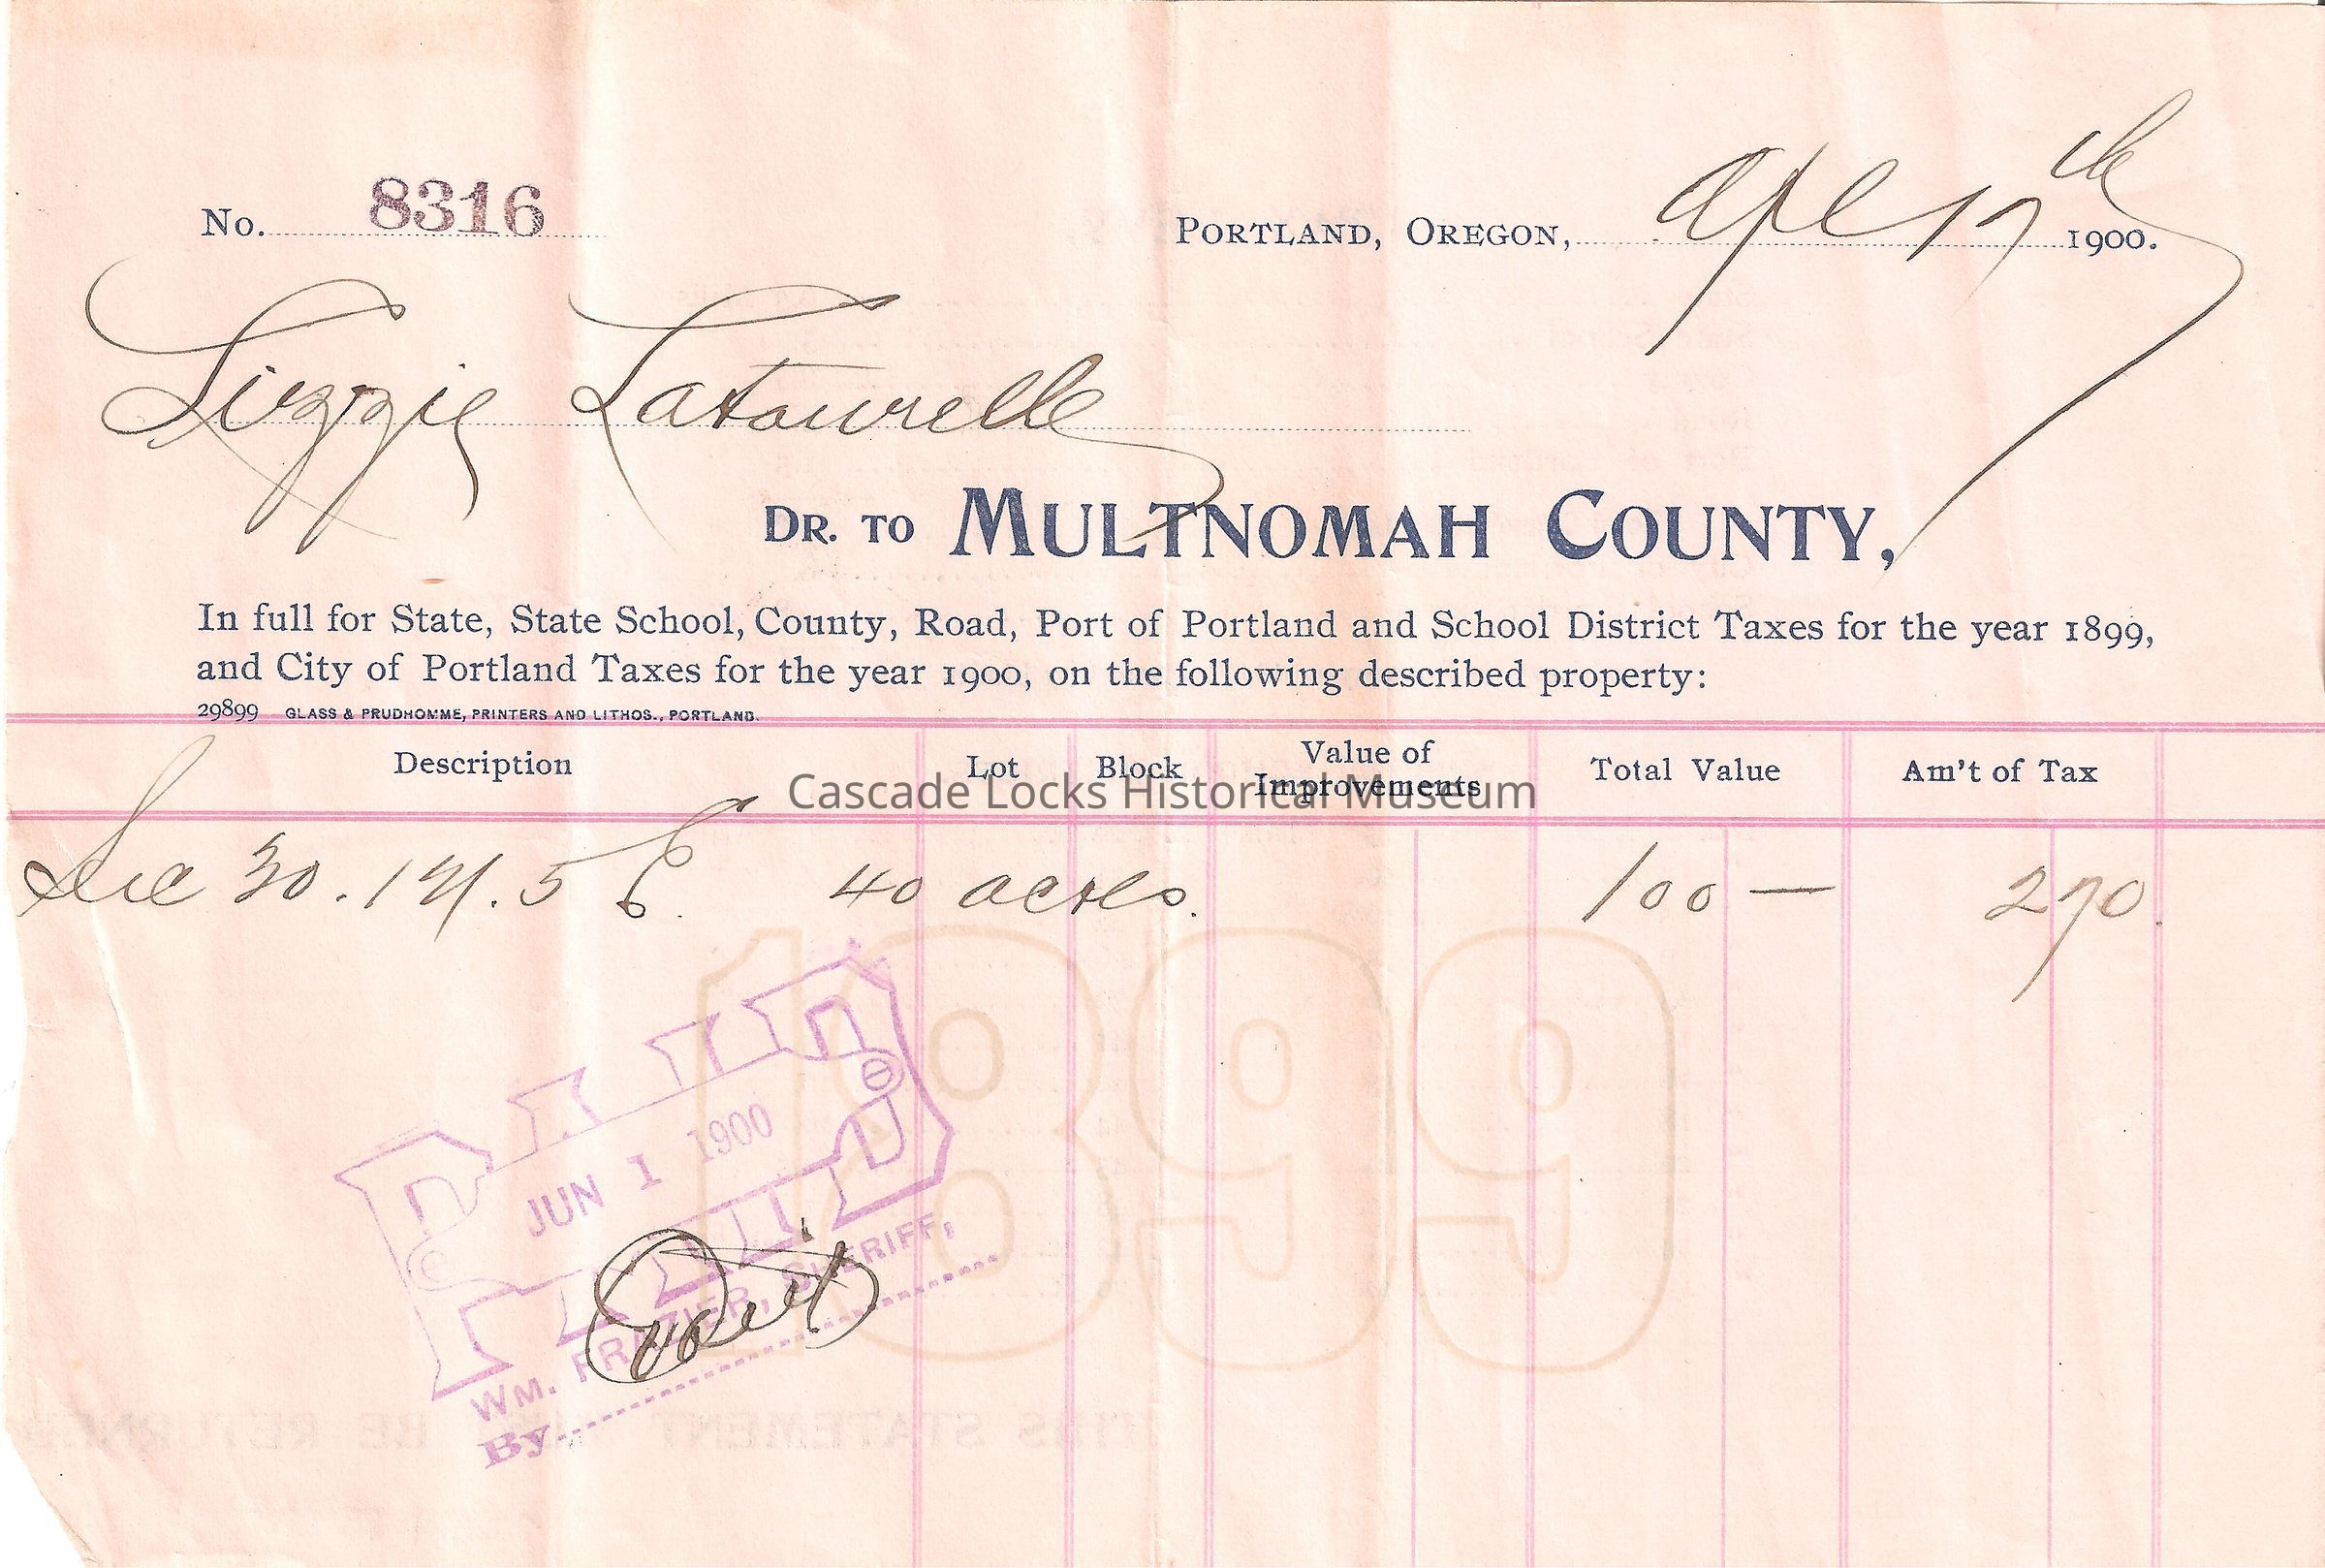 No. 8316
PORTLAND, OREGON, Apl 17th 1900.
Lizzie Latourelle
DR. TO MULTNOMAH COUNTY,
In full for State, State School, County, Road, Port of Portland and School District Taxes for the year 1899,
and City of Portland Taxes for the year 1900, on the following described property:
29899 GLASS & PRUDHOMME, PRINTERS AND LITHOS., PORTLAND.
Description Lot Block Value of Improvements Total Value Am't of Tax
Cascade Locks Historical Museum
Sec 30. 1N. 5 E. 40 acres. 100 — 2 70.
1899
PAID
JUN 1 1900
WM. FRAZIER, SHERIFF,
By
THIS STATEMENT BE RETURNED